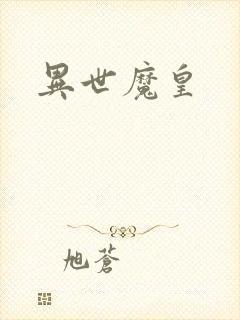 異世魔皇
旭蒼